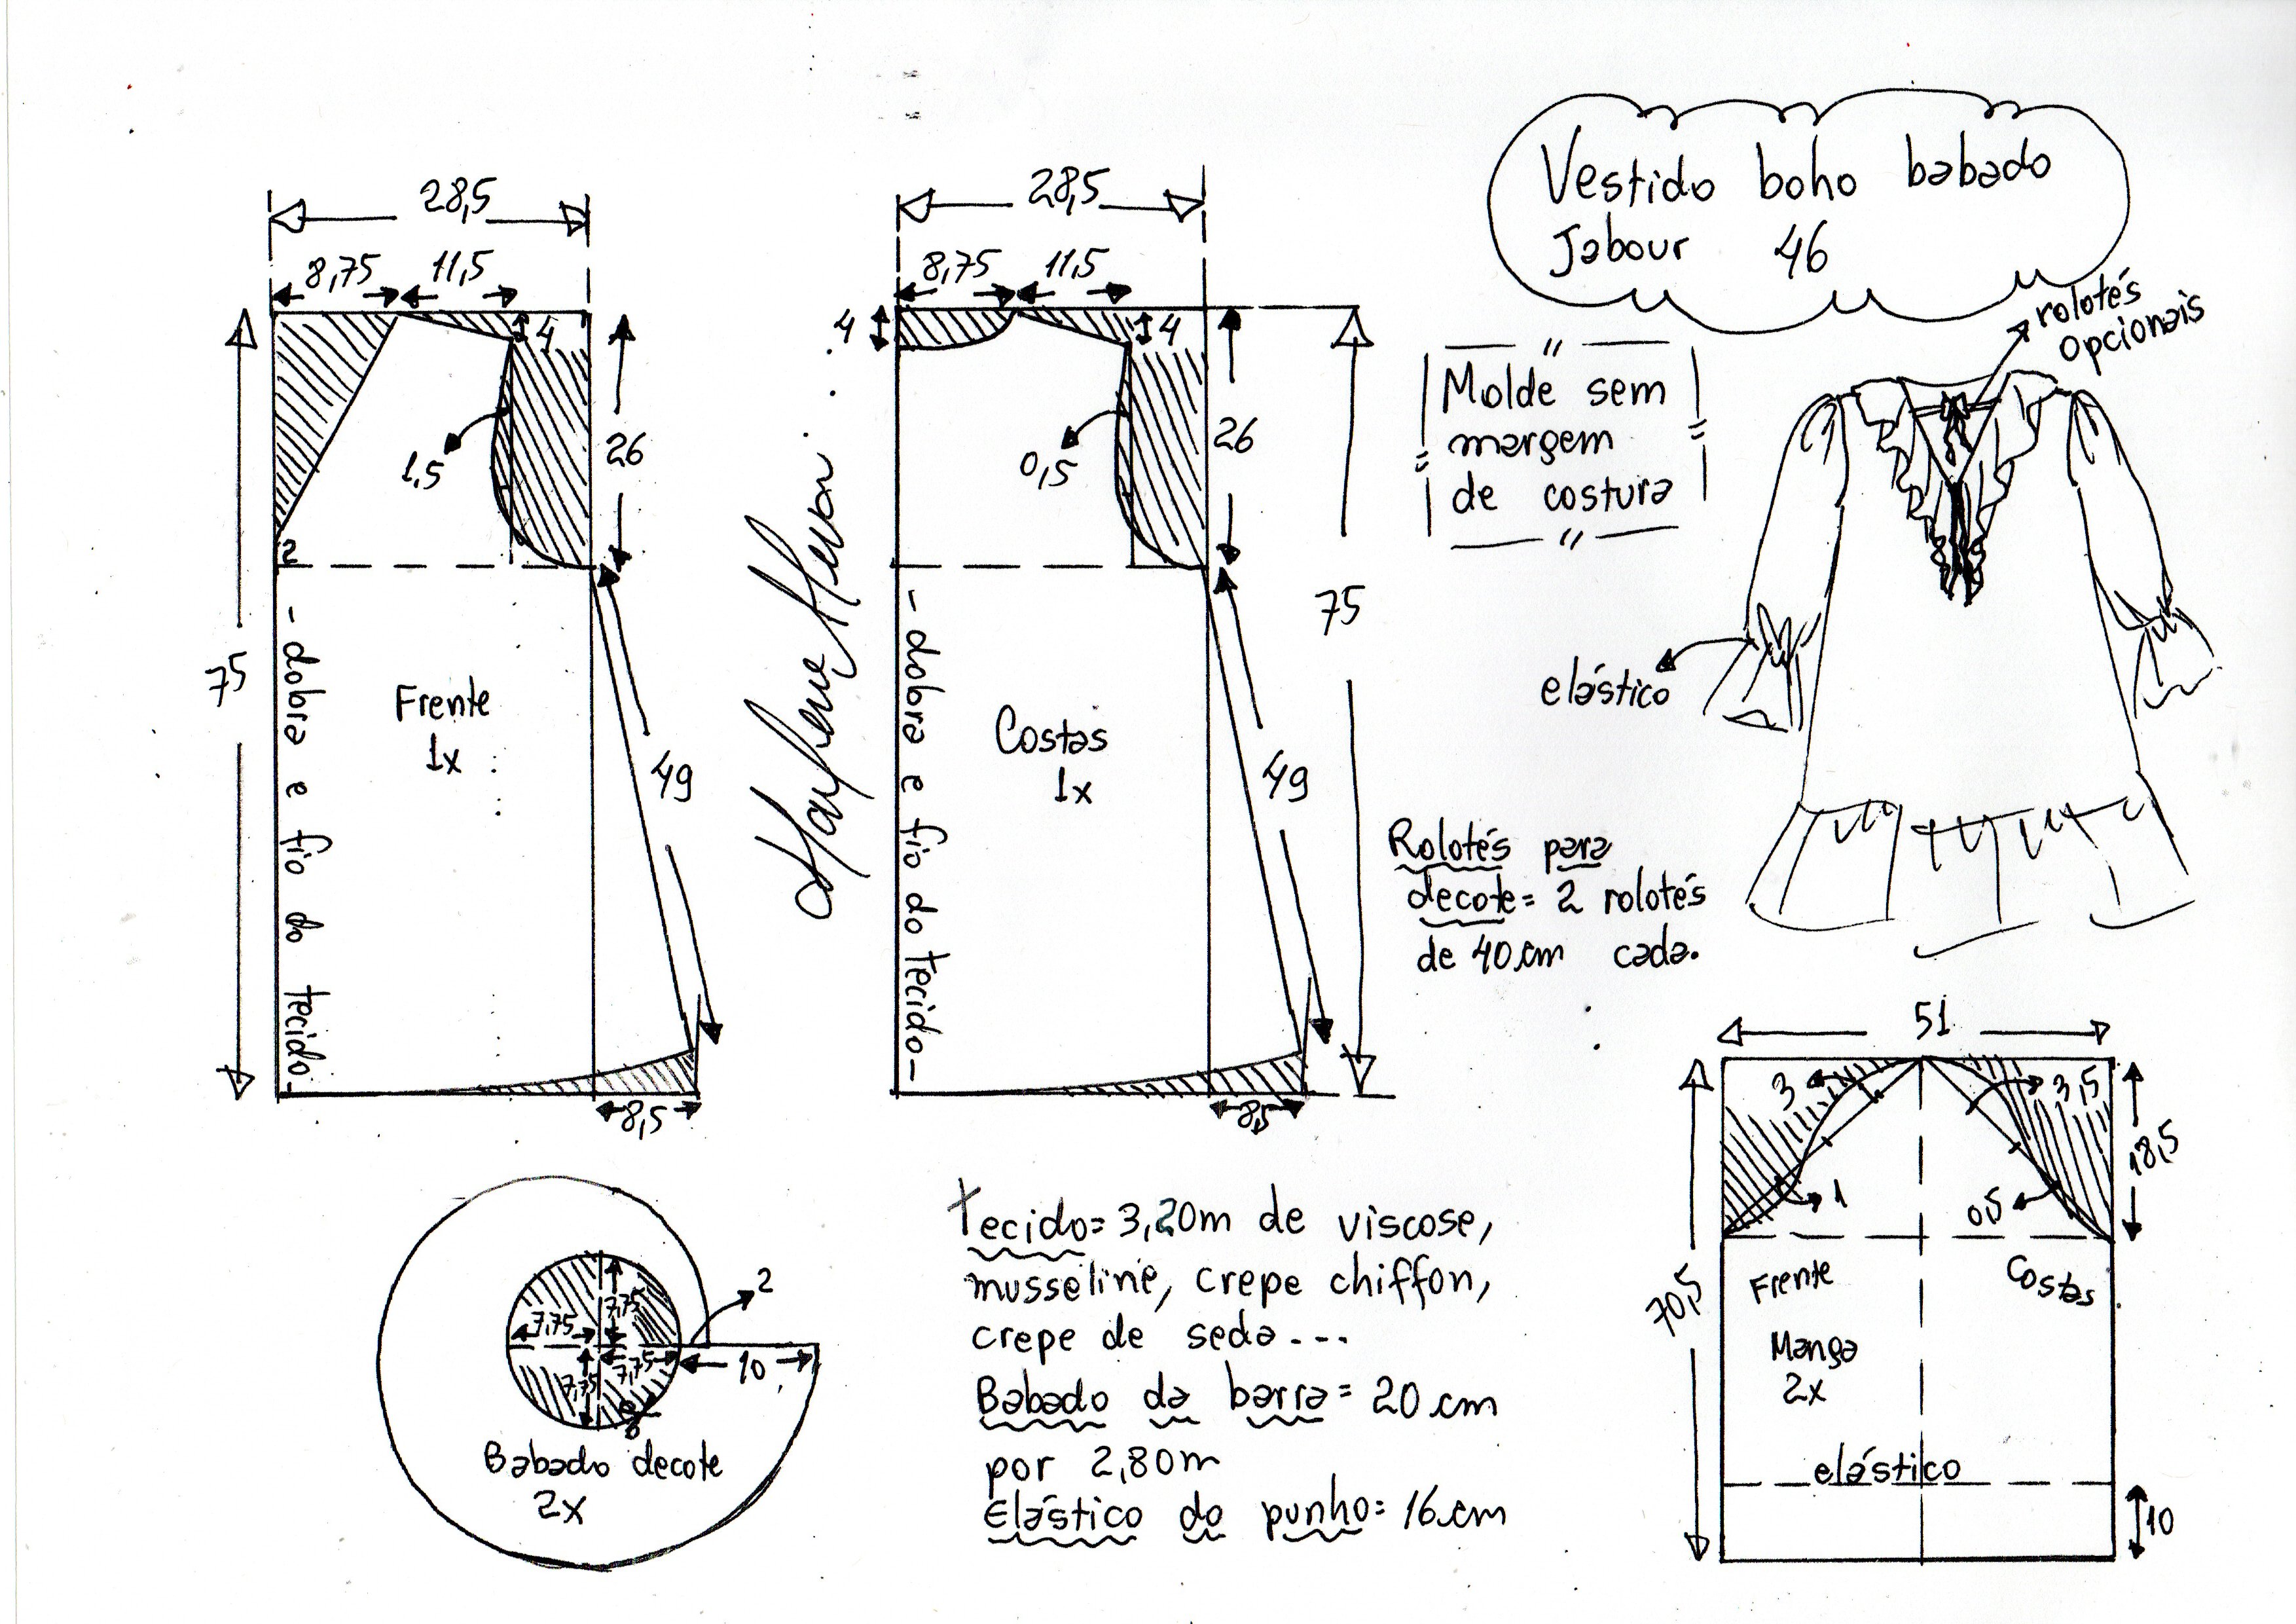 Vestido boho babado
Jabour 46
rolotés
opcionais
Molde sem
margem
de costura
28,5
8,75
11,5
4
26
1,5
2
75
49
8,5
- dobra e fio do tecido -
Frente
1x
28,5
8,75
11,5
4
4
26
0,5
75
49
8,5
- dobra e fio do tecido -
Costas
1x
elástico
Rolotés para
decote= 2 rolotés
de 40 cm cada.
7,75
7,75
7,75
7,75
2
10
Babado decote
2x
tecido= 3,20m de viscose,
musseline, crepe chiffon,
crepe de seda...
Babado da barra= 20 cm
por 2,80m
Elástico do punho= 16 cm
51
3
3,5
18,5
1
0,5
70,5
Frente
Costas
Manga
2x
elástico
10